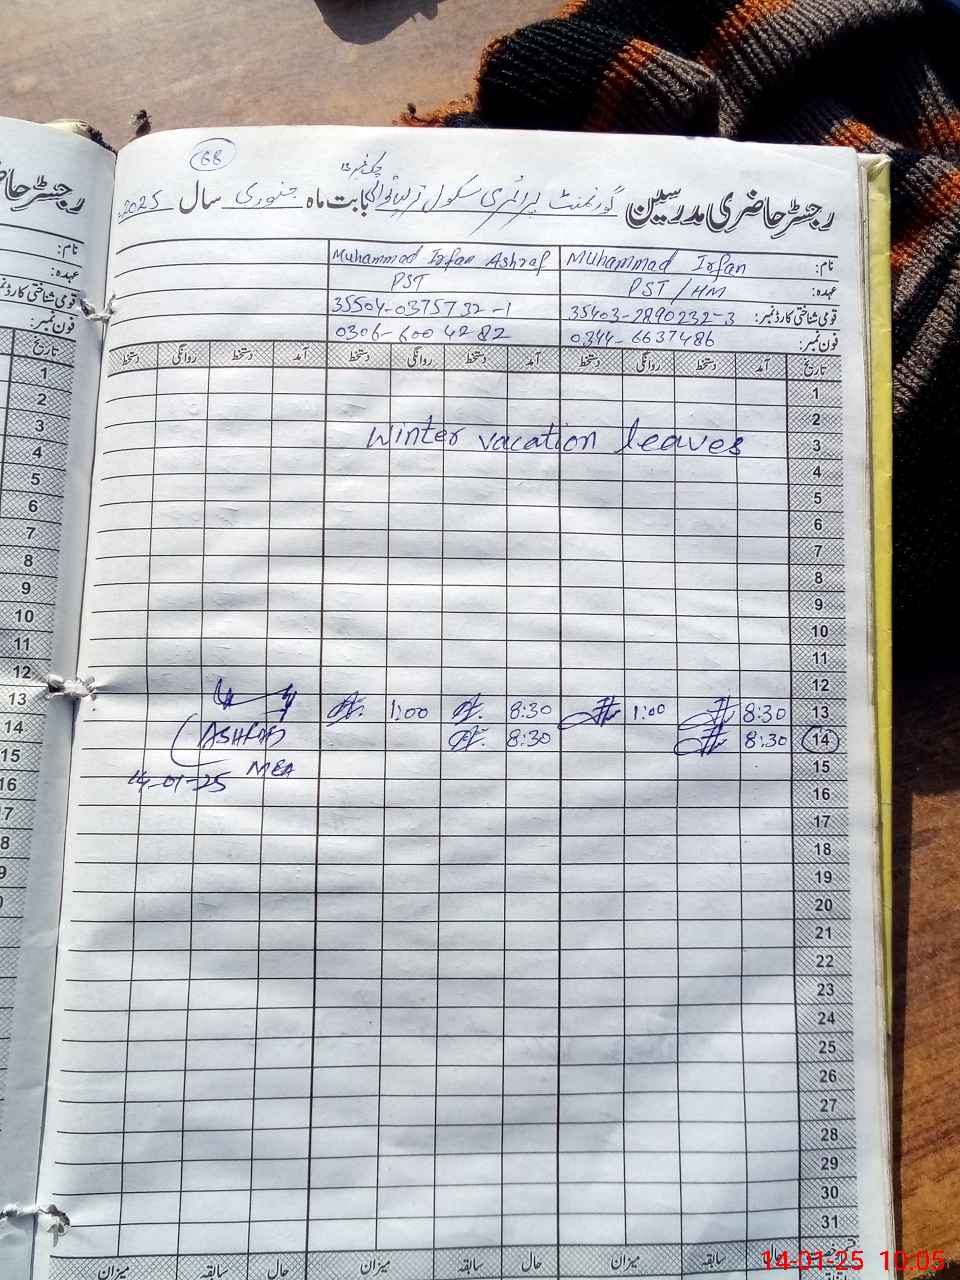 68
رجسٹر حاضری مدرسین گورنمنٹ پرائمری سکول بابت ماہ جنوری سال 2025ء
نام: Muhammad Irfan Muhammad Irfan Ashraf
عہدہ: PST/HM PST
قومی شناختی کارڈ نمبر: 35403-2890232-3 35504-0375732-1
فون نمبر: 0344-6637486 0306-6004282
تاریخ آمد دستخط روانگی دستخط آمد دستخط روانگی دستخط آمد دستخط روانگی دستخط
1
2
3 Winter vacation leaves
4
5
6
7
8
9
10
11
12
13 8:30 1:00 8:30 1:00
14 8:30 8:30 ASHRAF
15 MEA
14-01-25
16
17
18
19
20
21
22
23
24
25
26
27
28
29
30
31
حال سابقہ میزان حال سابقہ میزان حال سابقہ میزان
رجسٹر حاضری
نام:
عہدہ:
قومی شناختی کارڈ نمبر:
فون نمبر:
تاریخ
1
2
3
4
5
6
7
8
9
10
11
12
13
14
15
16
17
14-01-25 10:05